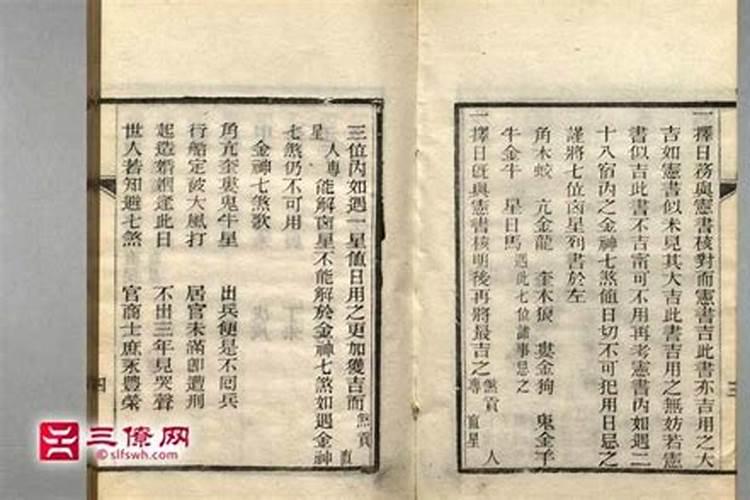 一擇日務與憲書核對而憲書吉此書亦吉用之大
吉如憲書似未見其大吉此書吉用之無妨若憲
書似吉此書不吉甯可不用再考憲書內如遇二
十八宿內之金神七煞值日切不可犯用日忌之
謹將七位凶星列書於左
角木蛟 亢金龍 奎木狼 婁金狗 鬼金羊
牛金牛 星日馬 遇此七位諸事忌之
一擇日旣與憲書核明後再將最吉之 煞貢 人專 直星
三
三位內如遇一星值日用之更加獲吉而 煞貢 直
星 人專 能解凶星不能解於金神七煞如遇金神
七煞仍不可用
金神七煞歌
角亢奎婁鬼牛星 出兵便是不囘兵
行船定被大風打 居官未滿卽遭刑
起造婚姻逢此日 不出三年見哭聲
世人若知避七煞 官商士庶永豐榮
四
三僚网
©slfswh.com